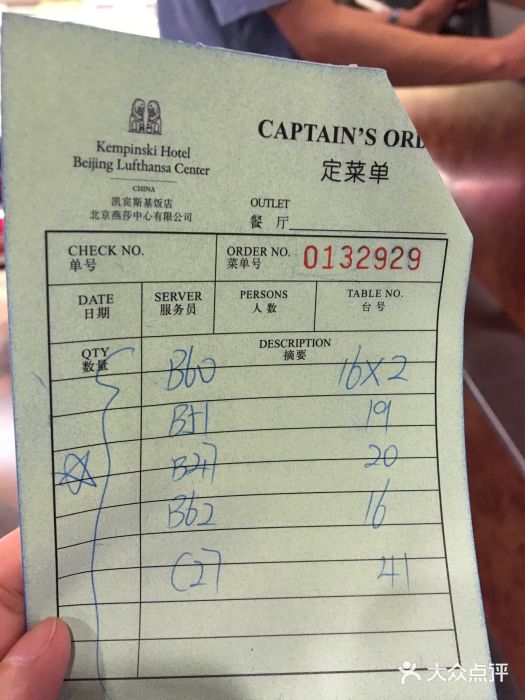 Kempinski Hotel
Beijing Lufthansa Center
CHINA
凯宾斯基饭店
北京燕莎中心有限公司
CAPTAIN'S ORD
定菜单
OUTLET
餐 厅
CHECK NO.
单号
ORDER NO. 0132929
菜单号
DATE SERVER PERSONS TABLE NO.
日期 服务员 人数 台号
QTY DESCRIPTION
数量 摘要
B60 16×2
B51 19
B47 20
B62 16
C27 41
大众点评